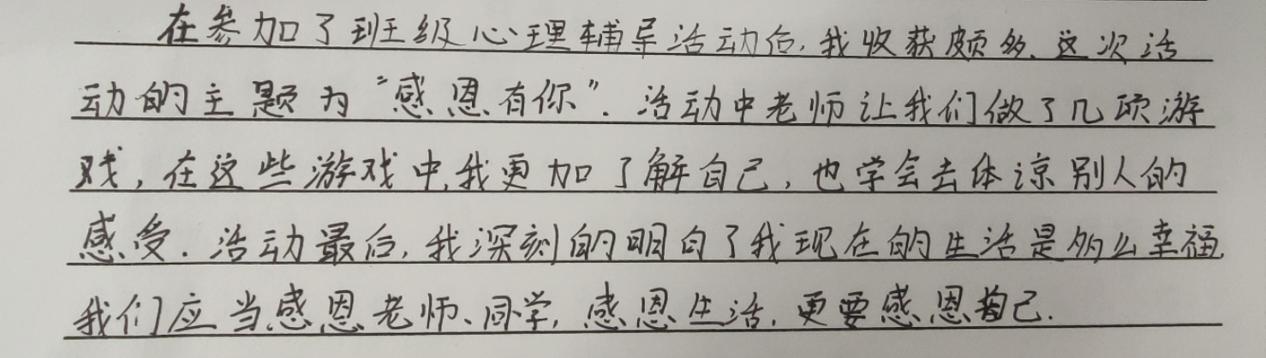 在参加了班级心理辅导活动后，我收获颇多，这次活
动的主题为“感恩有你”．活动中老师让我们做了几项游
戏，在这些游戏中，我更加了解自己，也学会去体谅别人的
感受．活动最后，我深刻的明白了我现在的生活是多么幸福，
我们应当感恩老师、同学，感恩生活，更要感恩自己．